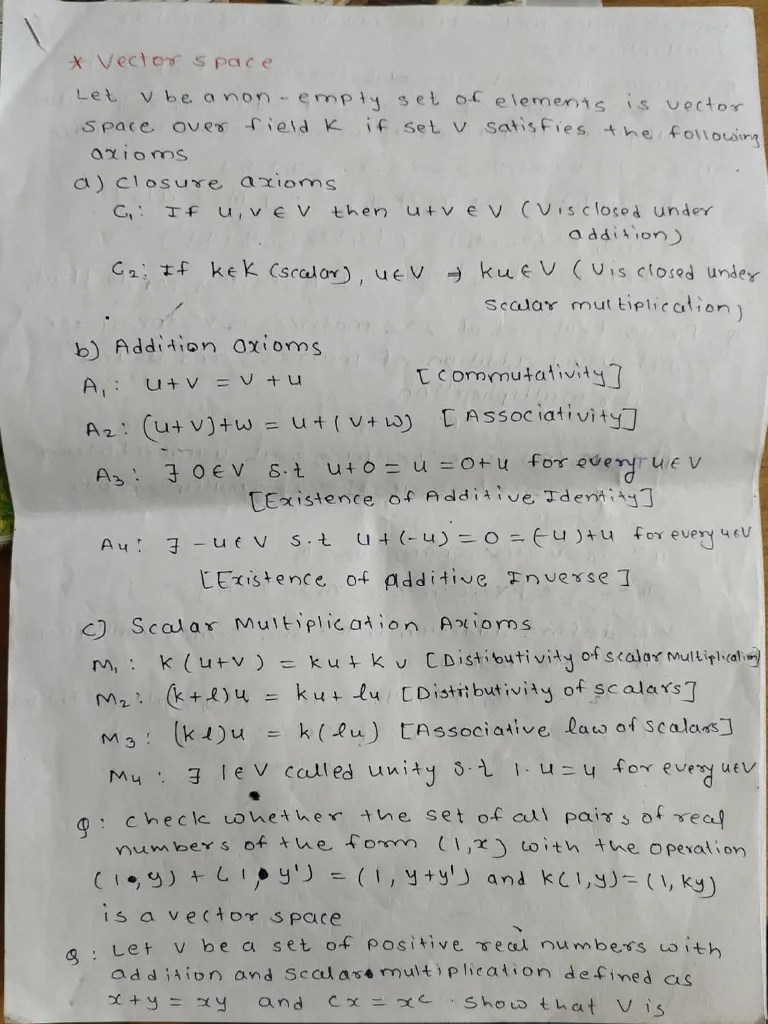 * Vector space
Let V be a non-empty set of elements is vector
space over field K if set V satisfies the following
axioms
a) Closure axioms
C₁: If u, v ∈ V then u+v ∈ V (V is closed under
addition)
C₂: If k∈K (scalar), u∈V ⇒ ku∈V (V is closed under
scalar multiplication)
b) Addition axioms
A₁: u+v = v+u [Commutativity]
A₂: (u+v)+w = u+(v+w) [Associativity]
A₃: ∃ 0∈V s.t u+0 = u = 0+u for every u∈V
[Existence of Additive Identity]
A₄: ∃ -u∈V s.t u+(-u) = 0 = (-u)+u for every u∈V
[Existence of additive Inverse]
c) Scalar Multiplication Axioms
M₁: k(u+v) = ku+kv [Distibutivity of scalar Multiplication]
M₂: (k+l)u = ku+lu [Distributivity of scalars]
M₃: (kl)u = k(lu) [Associative law of scalars]
M₄: ∃ 1∈V called unity s.t 1·u=u for every u∈V
Q: check whether the set of all pairs of real
numbers of the form (1,x) with the operation
(1,y) + (1,y') = (1, y+y') and k(1,y)=(1,ky)
is a vector space
Q: Let V be a set of positive real numbers with
addition and scalar multiplication defined as
x+y = xy and cx = xᶜ. Show that V is